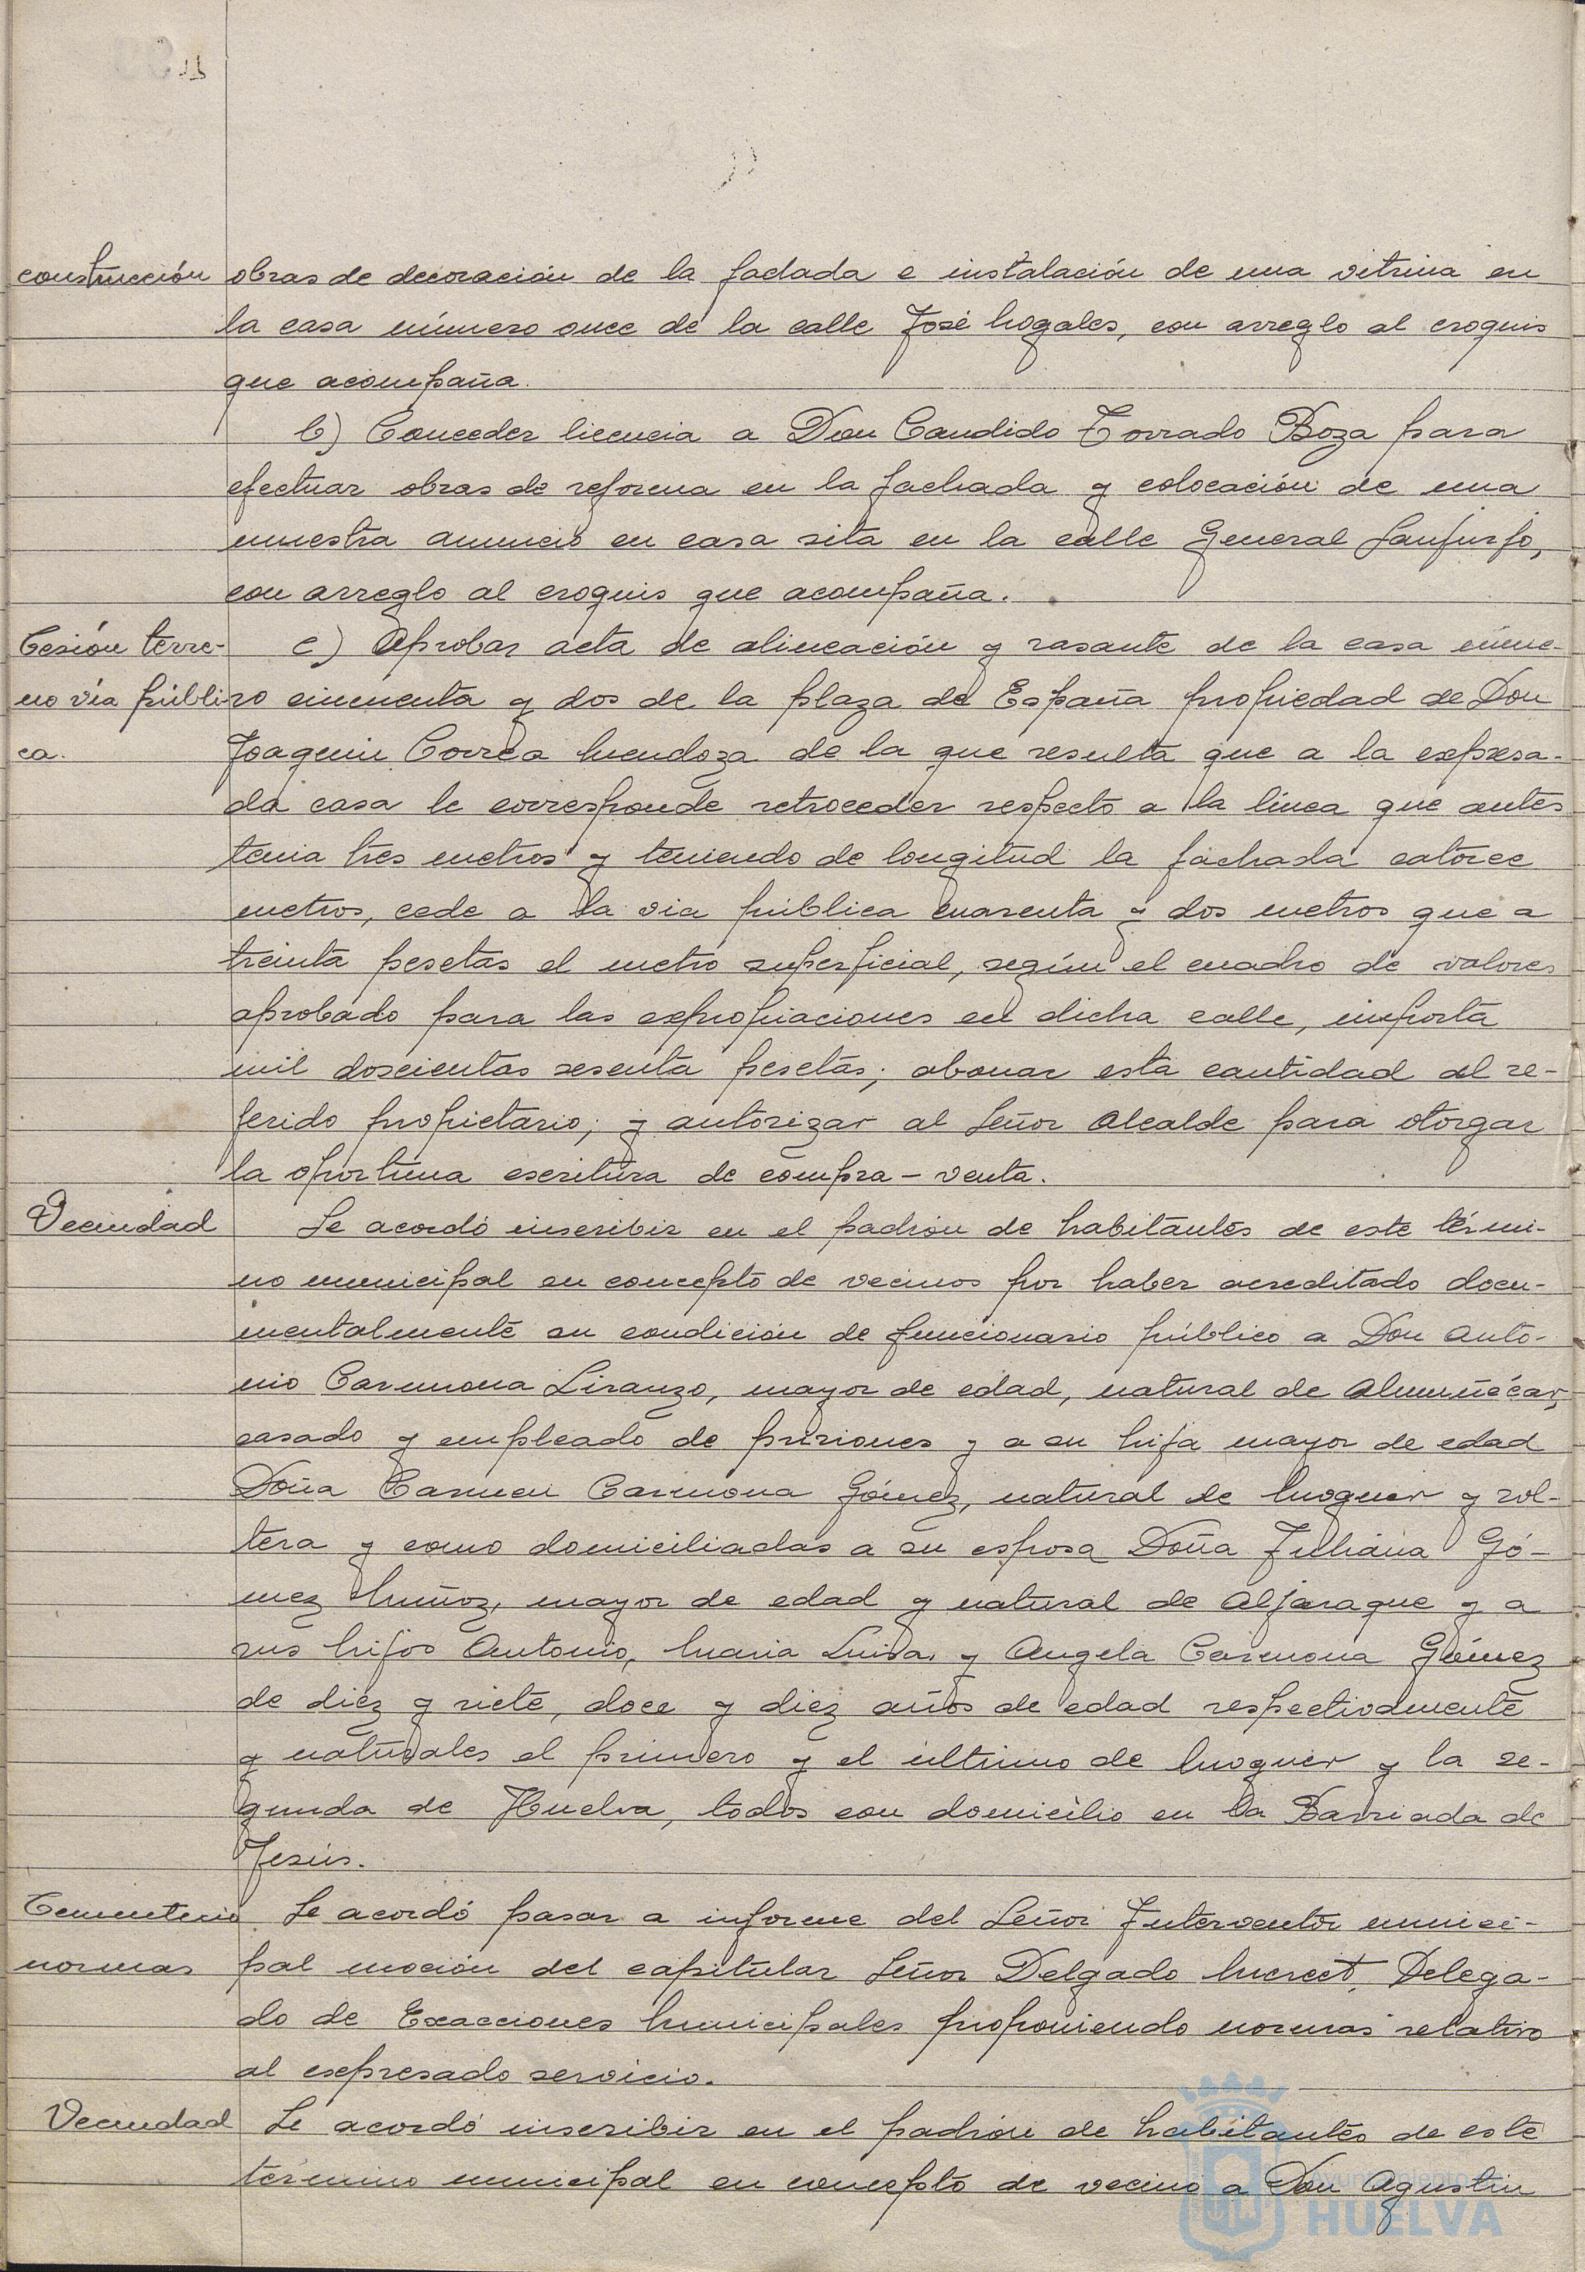 construcción obras de decoración de la fachada e instalación de una vitrina en
la casa número once de la calle José Nogales, con arreglo al croquis
que acompaña.
b) Conceder licencia a Don Candido Torrado Boza para
efectuar obras de reforma en la fachada y colocación de una
muestra anuncio en casa sita en la calle General Sanjurjo,
con arreglo al croquis que acompaña.
Cesión terre- c) Aprobar acta de alineación y rasante de la casa núme-
no vía públi- ro cincuenta y dos de la plaza de España propiedad de Don
ca. Joaquin Correa Mendoza de la que resulta que a la expresa-
da casa le corresponde retroceder respecto a la línea que antes
tenia tres metros y teniendo de longitud la fachada catorce
metros, cede a la via pública cuarenta y dos metros que a
treinta pesetas el metro superficial, según el cuadro de valores
aprobado para las expropiaciones en dicha calle, importa
mil doscientas sesenta pesetas; abonar esta cantidad al re-
ferido propietario; y autorizar al Señor Alcalde para otorgar
la oportuna escritura de compra-venta.
Vecindad Se acordó inscribir en el padrón de habitantes de este térmi-
no municipal en concepto de vecinos por haber acreditado docu-
mentalmente su condición de funcionario público a Don Anto-
nio Carmona Liranzo, mayor de edad, natural de Almuñécar,
casado y empleado de prisiones y a su hija mayor de edad
Doña Carmen Carmona Gómez, natural de Moguer y sol-
tera y como domiciliadas a su esposa Doña Juliana Gó-
mez Muñoz, mayor de edad y natural de Aljaraque y a
sus hijos Antonio, Maria Luisa, y Angela Carmona Gómez
de diez y siete, doce y diez años de edad respectivamente
y naturales el primero y el último de Moguer y la se-
gunda de Huelva, todos con domicilio en la Barriada de
Jesús.
Cementerio Se acordó pasar a informe del Señor Interventor munici-
normas pal moción del capitular Señor Delgado Merect, Delega-
do de Exacciones Municipales proponiendo normas relativo
al expresado servicio.
Vecindad Se acordó inscribir en el padrón de habitantes de este
término municipal en concepto de vecino a Don Agustin
Ayuntamiento de
HUELVA